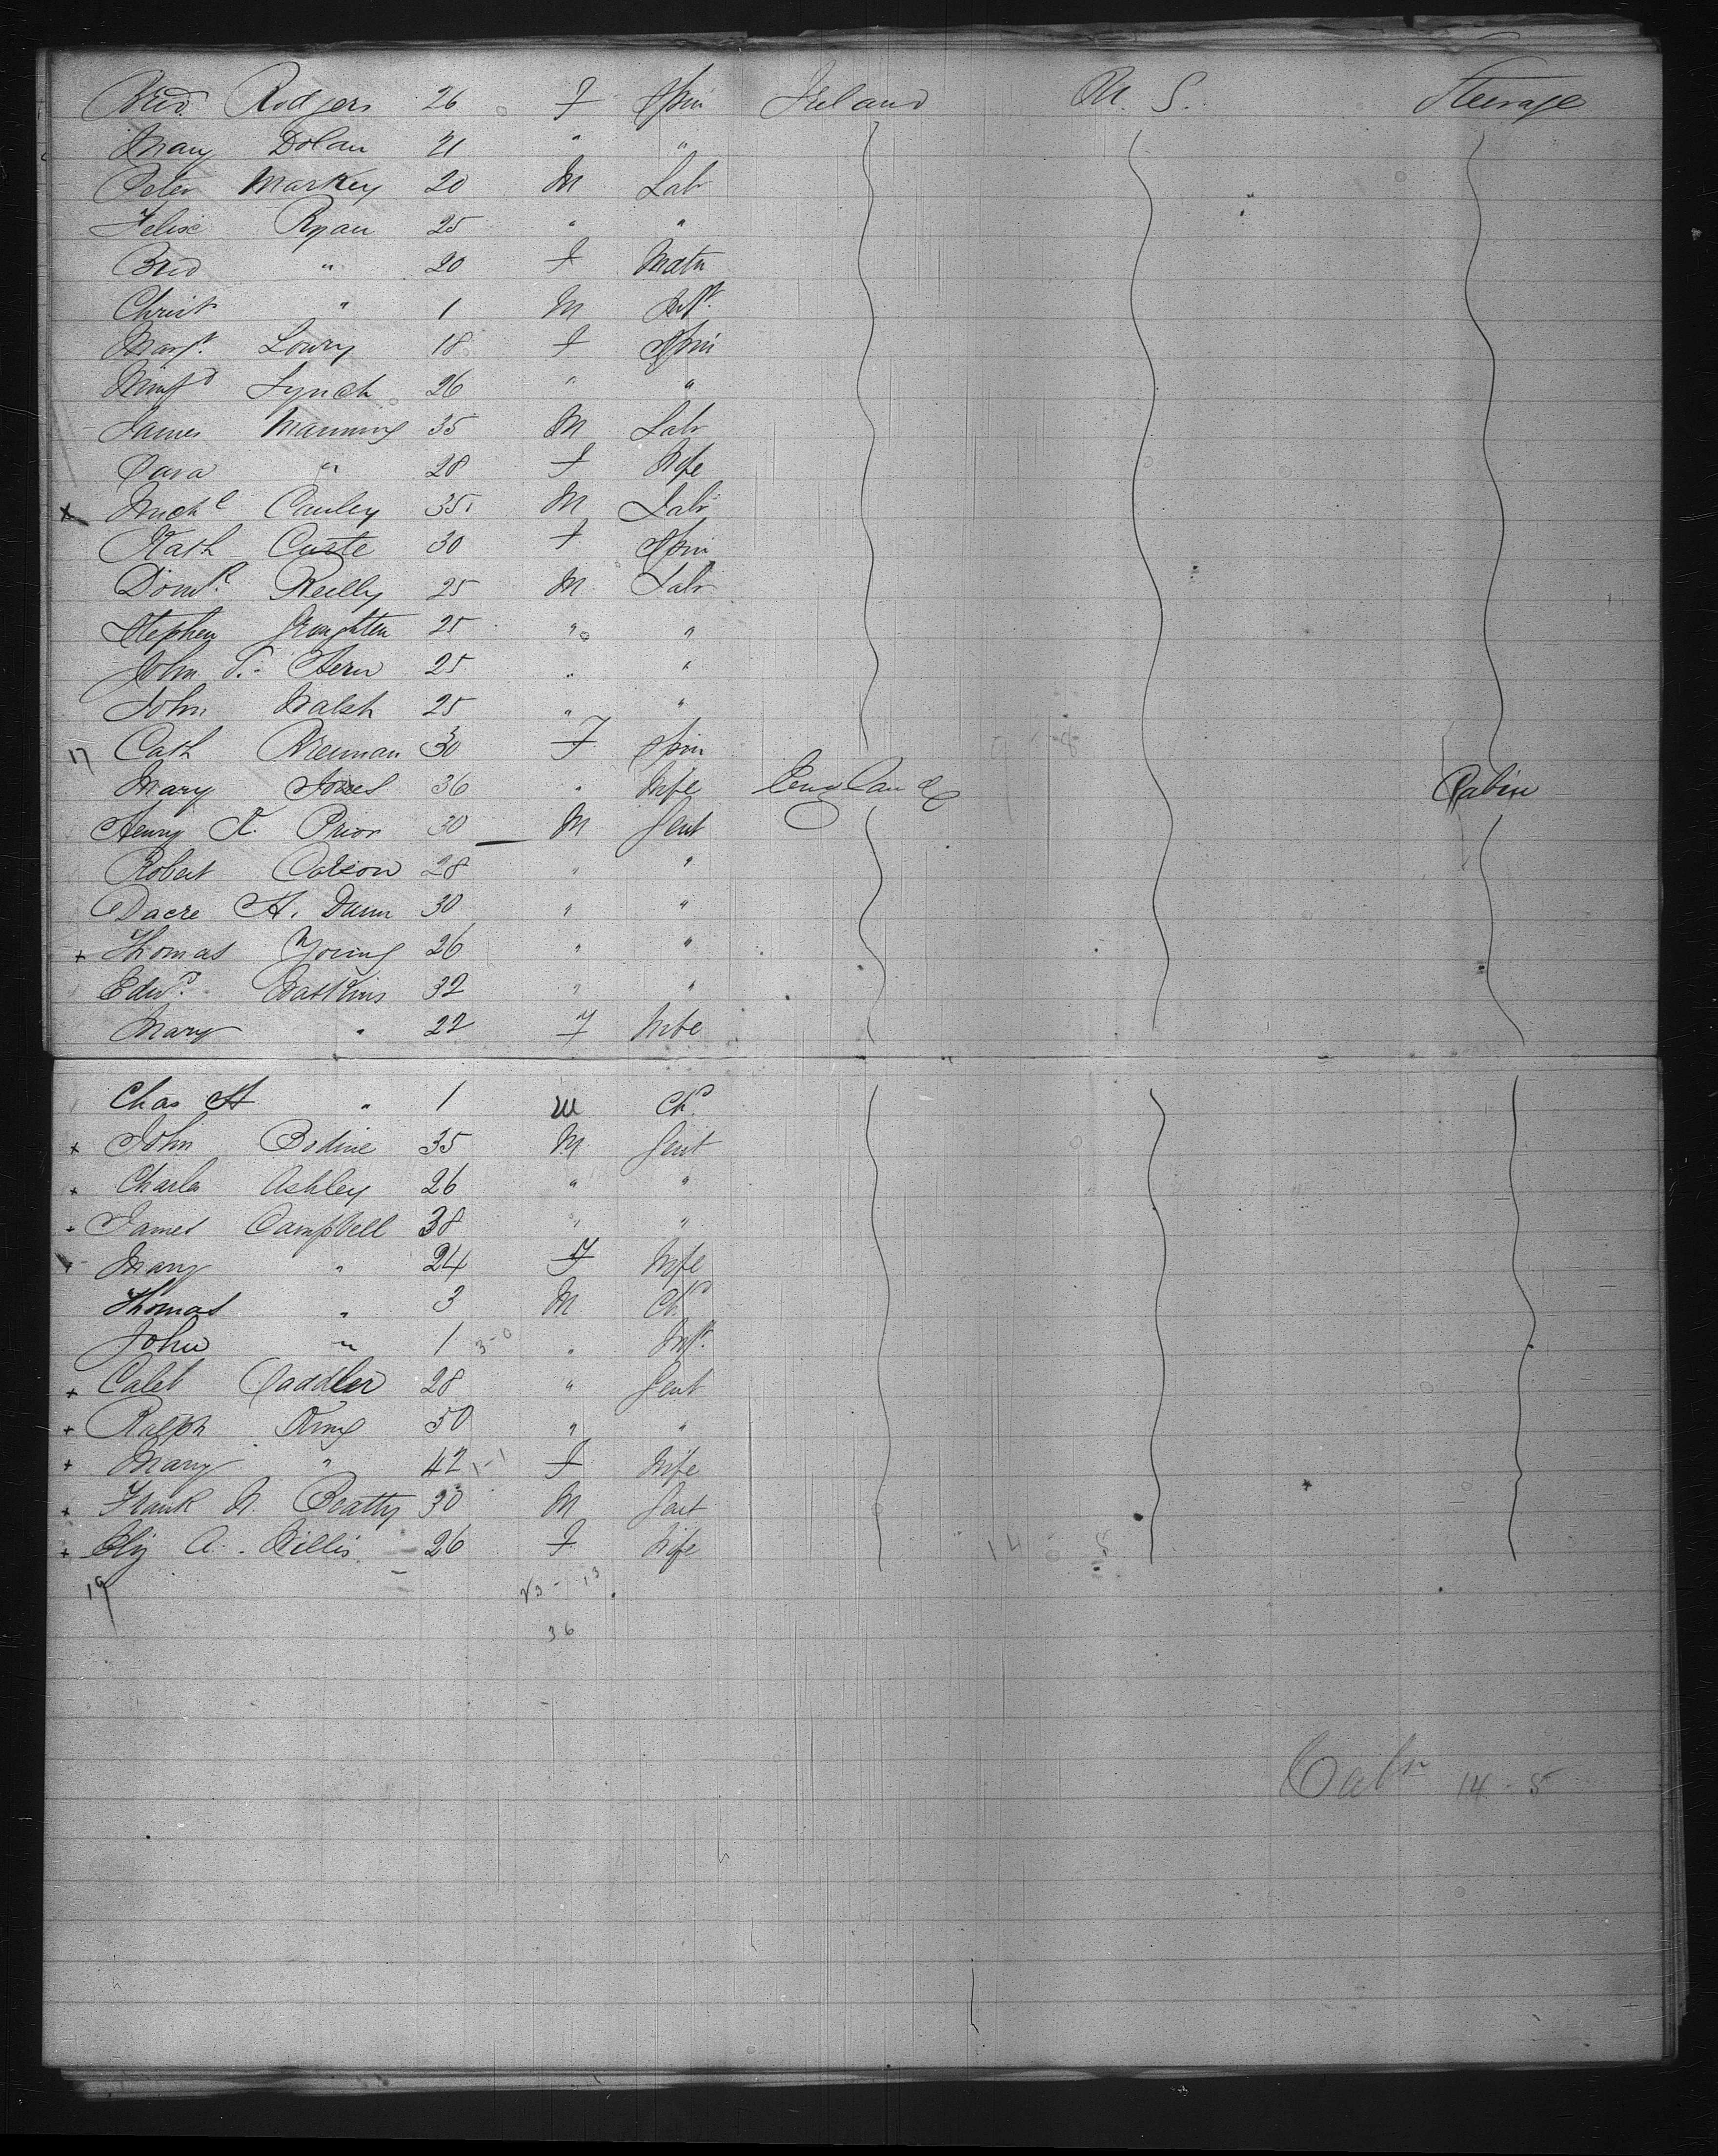 Brid. Rodgers 26 F Spin Ireland U. S. Steerage
Mary Dolan 21 " "
Peter Markey 20 M Labr
Felix Ryan 25 " "
Brid " 20 F Matn
Christr " 1 M Inft.
Margt. Lowry 18 F Spin
Winfd Lynch 26 " "
James Manning 35 M Labr
Sara " 28 F Wife
x Michl Cauley 35 M Labr
Kath 30 F Spin
Domk. Reilly 25 M Labr
Stephen 25 " "
John T. Hern 25 " "
John Walsh 25 " "
17 Cath Brennan 30 F Spin
Mary Jones 36 " Wife England Cabin
Henry K. Prior 30 M Gent
Robert 28 " "
Dacre H. Dunn 30 " "
+ Thomas Young 26 " "
Edwd. Watkins 32 " "
Mary " 22 F Wife
Chas H " 1 M Chd.
x John Bodine 35 M Gent
x Charles Ashley 26 " "
James Campbell 38 " "
Mary " 24 F Wife
Thomas " 3 M Chd.
John " 1 3-0 " Inft.
+ Caleb Saddler 28 " Gent
+ Ralph King 50 " "
+ Mary " 42 1-1 F Wife
+ Frank N. Beatty 30 M Gent
+ Eliz A. Willis 26 F Wife 14 8
19 23 - 13
36
Cabn 14 - 5